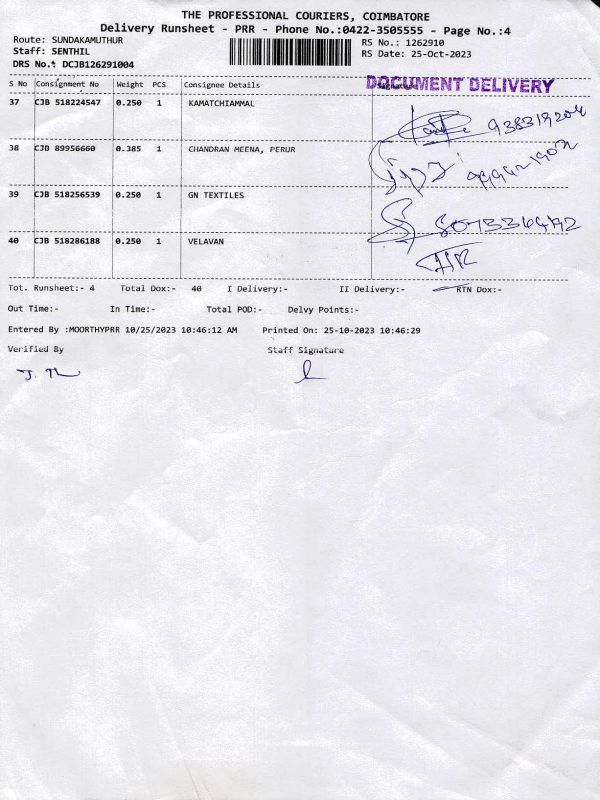 THE PROFESSIONAL COURIERS, COIMBATORE
Delivery Runsheet - PRR - Phone No.:0422-3505555 - Page No.:4
Route: SUNDAKAMUTHUR RS No.: 1262910
Staff: SENTHIL RS Date: 25-Oct-2023
DRS No.: DCJB126291004
DOCUMENT DELIVERY
S No Consignment No Weight PCS Consignee Details Signature
37 CJB 518224547 0.250 1 KAMATCHIAMMAL
38 CJD 89956660 0.385 1 CHANDRAN MEENA, PERUR
39 CJB 518256539 0.250 1 GN TEXTILES
40 CJB 518286188 0.250 1 VELAVAN
Tot. Runsheet:- 4 Total Dox:- 40 I Delivery:- II Delivery:- RTN Dox:-
Out Time:- In Time:- Total POD:- Delvy Points:-
Entered By :MOORTHYPRR 10/25/2023 10:46:12 AM Printed On: 25-10-2023 10:46:29
Verified By Staff Signature